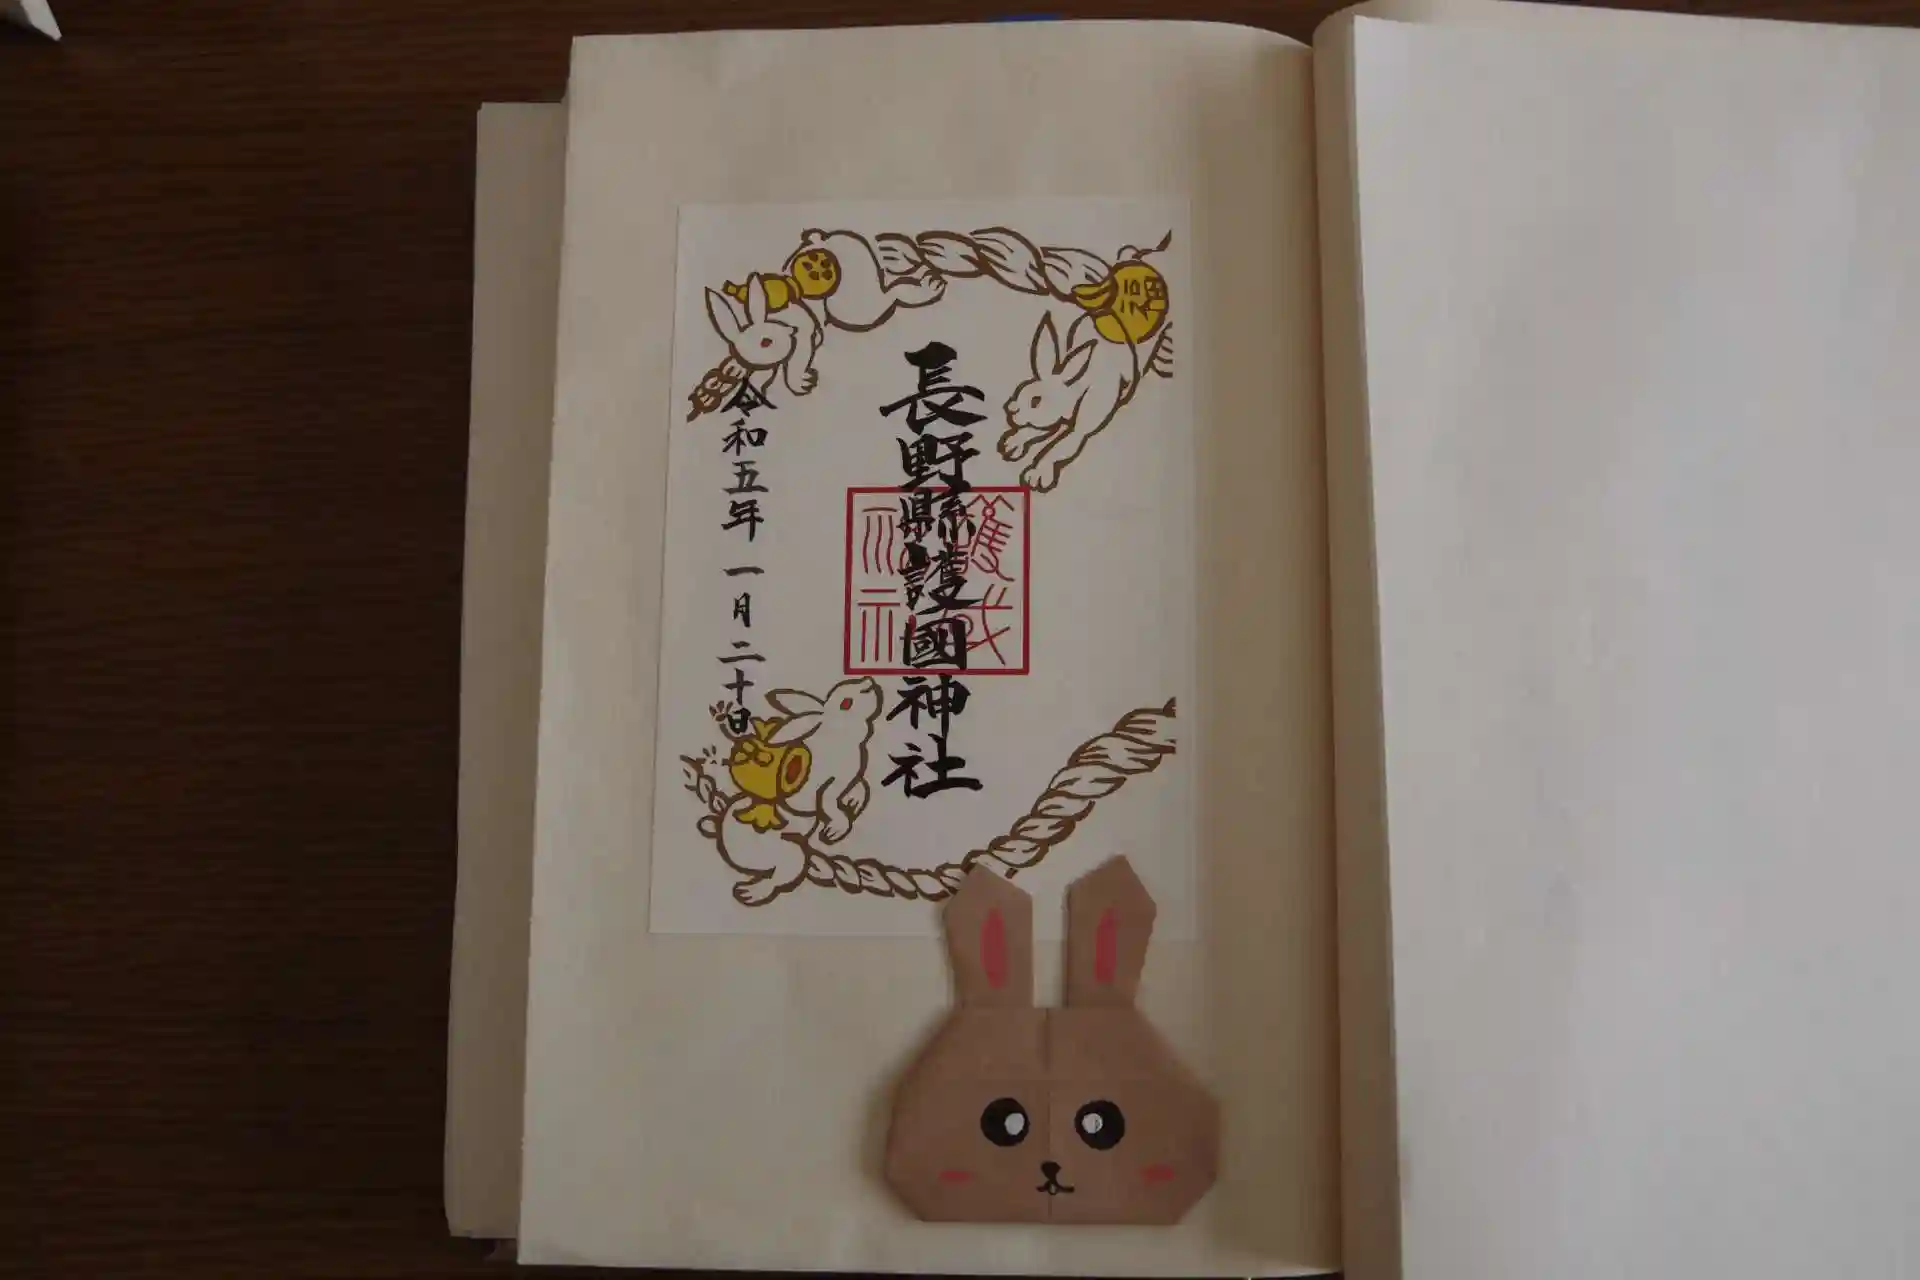 長野縣護國神社
令和五年一月二十日
福